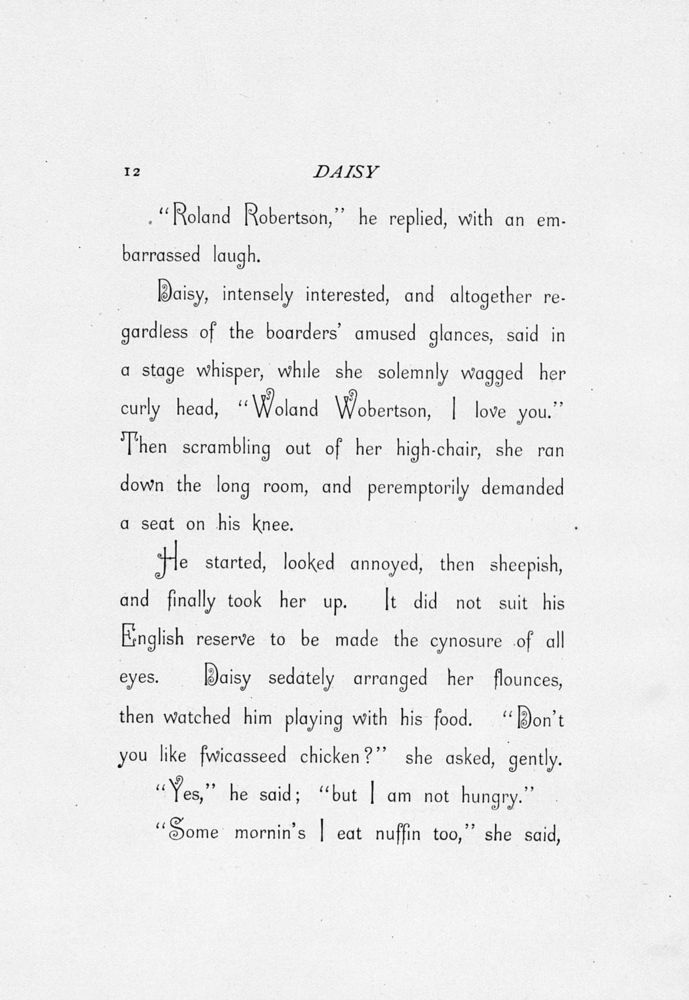 12 DAISY
"Roland Robertson," he replied, with an em-
barrassed laugh.
Daisy, intensely interested, and altogether re-
gardless of the boarders' amused glances, said in
a stage whisper, while she solemnly wagged her
curly head, "Woland Wobertson, I love you."
Then scrambling out of her high-chair, she ran
down the long room, and peremptorily demanded
a seat on his knee.
He started, looked annoyed, then sheepish,
and finally took her up. It did not suit his
English reserve to be made the cynosure of all
eyes. Daisy sedately arranged her flounces,
then watched him playing with his food. "Don't
you like fwicasseed chicken?" she asked, gently.
"Yes," he said; "but I am not hungry."
"Some mornin's I eat nuffin too," she said,